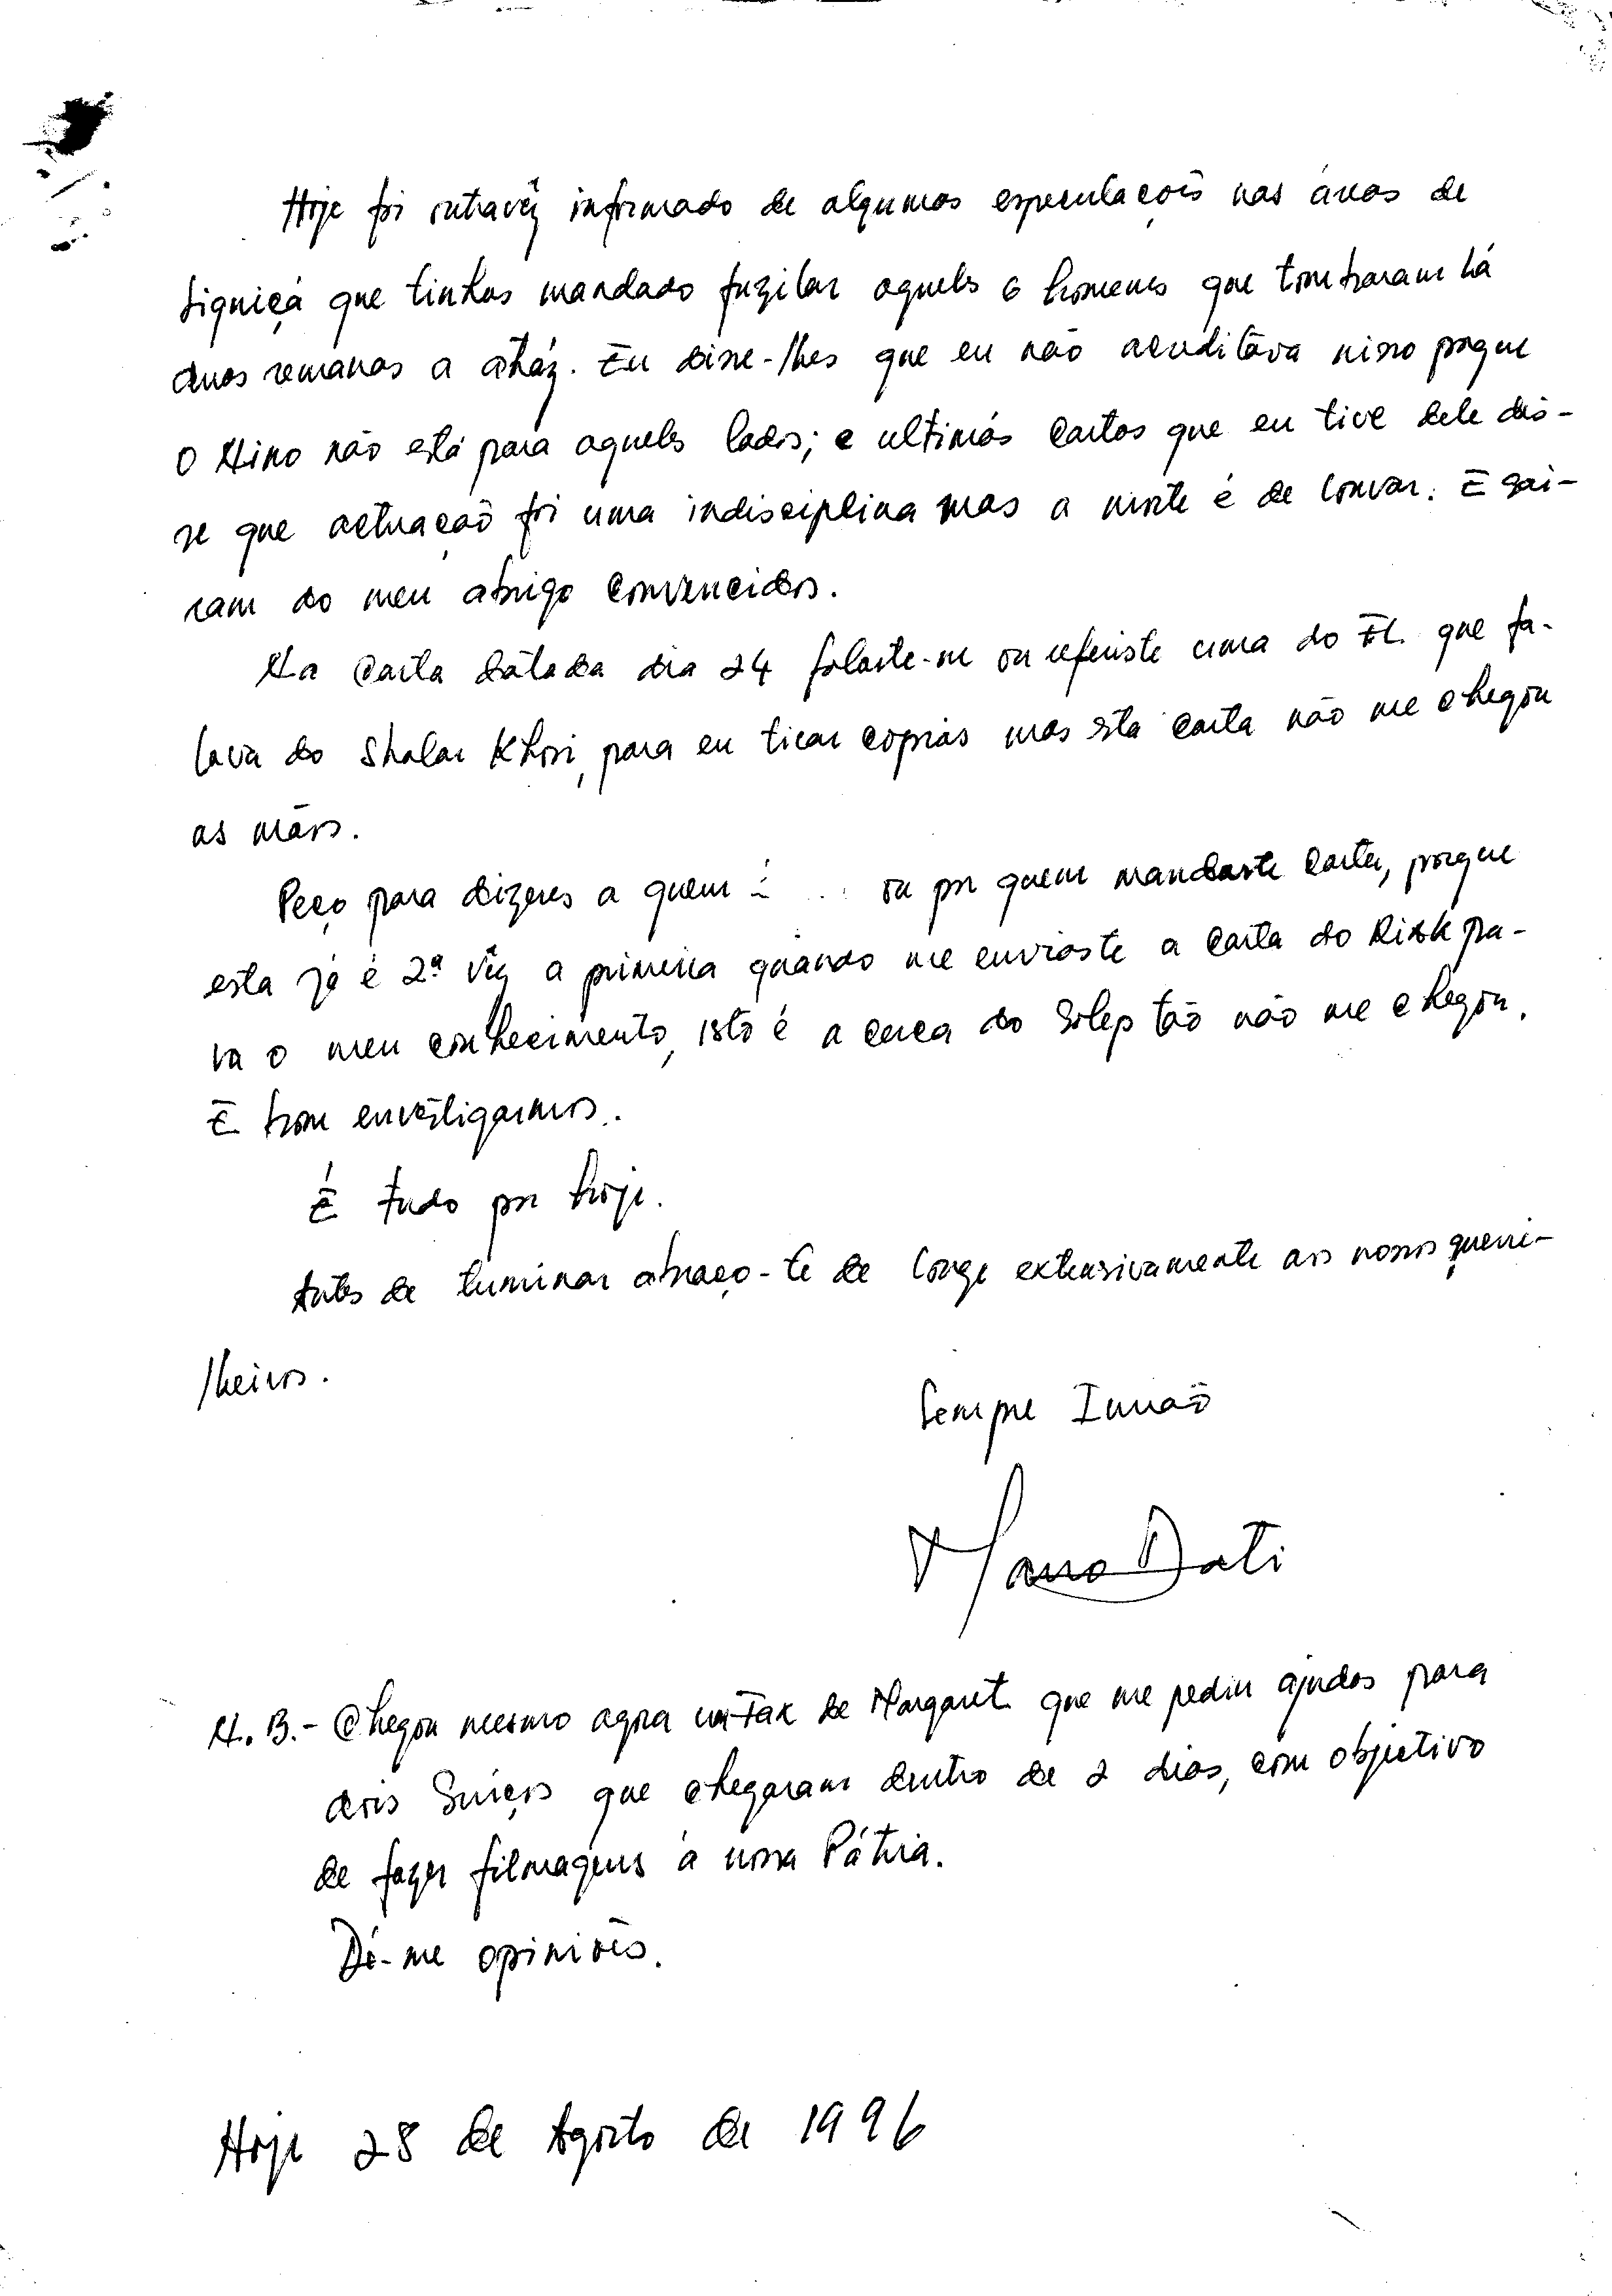 Hoje foi outravêz informado de algumas especulacoẽs nas áreas de
Liquiçá que tinhas mandado fuzilar aqueles 6 homens que tombaram há
duas semanas a atráz. Eu disse-lhes que eu não acuditava nisso porque
O Nino não está para aqueles lados; e ultimás cartas que eu tive dele dis-
se que actuacão foi uma indisciplina mas a morte é de louvar. E sai-
ram do meu abrigo convencidos.
Na Carta dátada dia 24 falaste-me ou referiste uma do que fa-
lava do Shalar Khosi, para eu ticar copias mas esta carta não me chegou
as mãos.
Peço para dizeres a quem ou por quem mandaste carta, porque
esta já é 2ª vêz a primeira quando me enviaste a carta do pa-
ra o meu conhecimento, isto é a cerca do tão não me chegou.
E bom envéstigarmos.
É tudo por hoje.
Antes de terminar abraço-te de longe extensivamente aos nossos guerri-
lheiros.
Sempre Irmaõ
Mano Dati
N.B.- Chegou mesmo agora um Fax de Margaret que me pediu ajudas para
dois Suiços que chegaram dentro de 2 dias, com objectivo
de fazer filmagens á nossa Pátria.
Dê-me opiniões.
Hoje 28 de Agosto de 1996